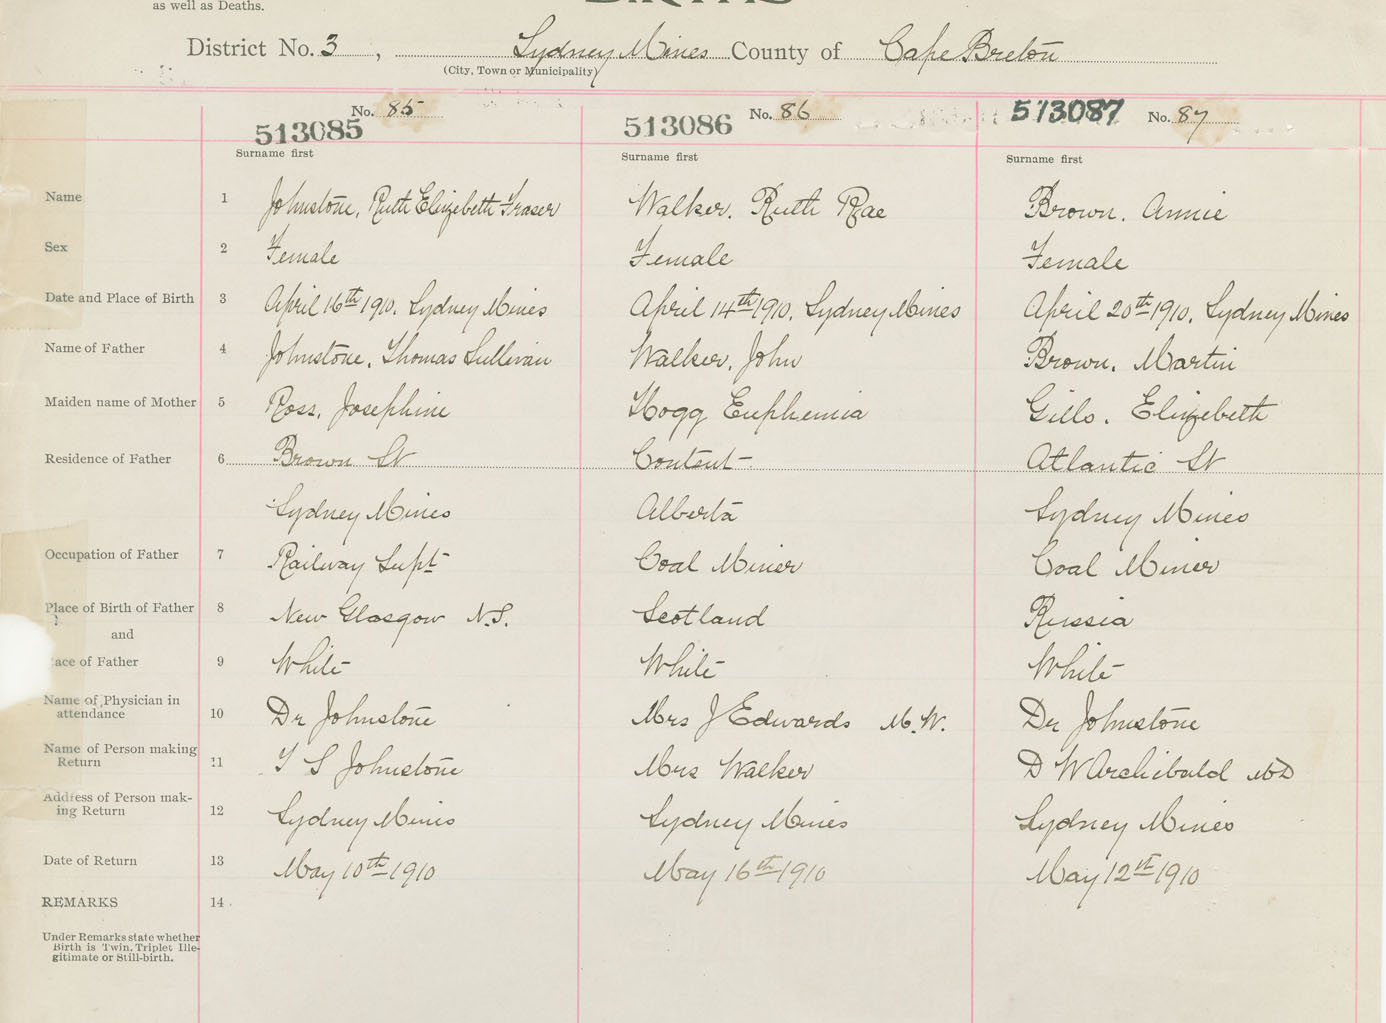 as well as Deaths.
BIRTHS
District No. 3, Sydney Mines County of Cape Breton
(City, Town or Municipality)
No. 85 No. 86 No. 87
513085 513086 513087
Surname first Surname first Surname first
Name 1 Johnstone, Ruth Elizebeth Fraser Walker, Ruth Rae Brown, Annie
Sex 2 Female Female Female
Date and Place of Birth 3 April 16th 1910, Sydney Mines April 14th 1910, Sydney Mines April 20th 1910, Sydney Mines
Name of Father 4 Johnstone, Thomas Sullivan Walker, John Brown, Martin
Maiden name of Mother 5 Ross, Josephine Hogg Euphemia Gillo, Elizebeth
Residence of Father 6 Brown St Content Atlantic St
Sydney Mines Alberta Sydney Mines
Occupation of Father 7 Railway Supt Coal Miner Coal Miner
Place of Birth of Father 8 New Glasgow N.S. Scotland Russia
and
ace of Father 9 White White White
Name of Physician in
attendance 10 Dr Johnstone Mrs J Edwards M.W. Dr Johnstone
Name of Person making
Return 11 T S Johnstone Mrs Walker D W Archibald MD
Address of Person mak-
ing Return 12 Sydney Mines Sydney Mines Sydney Mines
Date of Return 13 May 10th 1910 May 16th 1910 May 12th 1910
REMARKS 14
Under Remarks state whether
Birth is Twin, Triplet Ille-
gitimate or Still-birth.